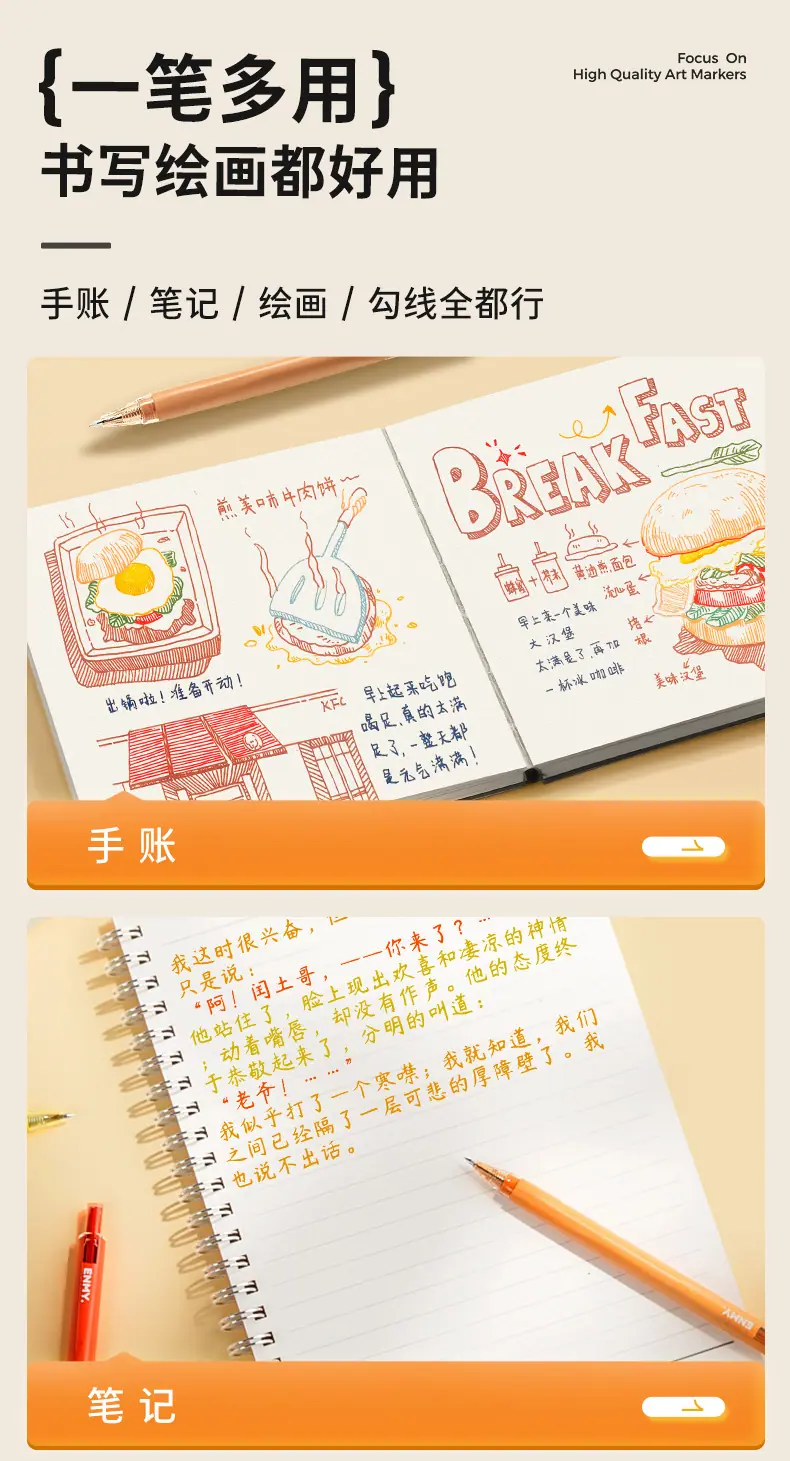 {一笔多用}
Focus On
High Quality Art Markers
书写绘画都好用
手账 / 笔记 / 绘画 / 勾线全都行
煎美味牛肉饼
出锅啦！准备开动！
KFC
早上起来吃饱
喝足,真的太满
足了,一整天都
是元气满满！
BREAK FAST
黄油煎面包
溏心蛋
早上来一个美味
大汉堡
太满足了,再加
一杯冰咖啡
美味汉堡
手账
我这时很兴奋，
只是说：
“阿！闰土哥，——你来了？…
他站住了，脸上现出欢喜和凄凉的神情
；动着嘴唇，却没有作声。他的态度终
于恭敬起来了，分明的叫道：
“老爷！……”
我似乎打了一个寒噤；我就知道，我们
之间已经隔了一层可悲的厚障壁了。我
也说不出话。
ENMY.
ENMY.
笔记